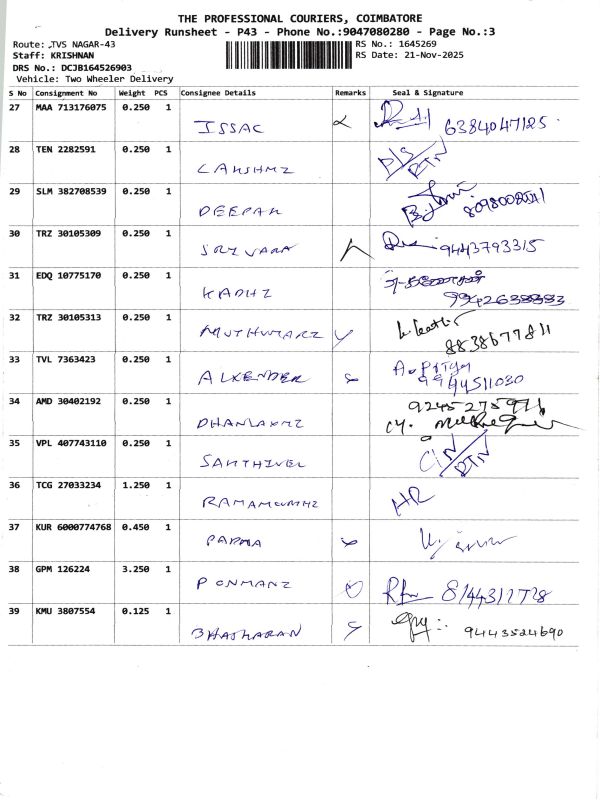 THE PROFESSIONAL COURIERS, COIMBATORE
Delivery Runsheet - P43 - Phone No.:9047080280 - Page No.:3
Route: ,TVS NAGAR-43 RS No.: 1645269
Staff: KRISHNAN RS Date: 21-Nov-2025
DRS No.: DCJB164526903
Vehicle: Two Wheeler Delivery
S No Consignment No Weight PCS Consignee Details Remarks Seal & Signature
27 MAA 713176075 0.250 1
ISSAC 6384047125
28 TEN 2282591 0.250 1
LAKSHMI D/S RTN
29 SLM 382708539 0.250 1
DEEPAK 8098002541
30 TRZ 30105309 0.250 1
SRIVARA 9443793315
31 EDQ 10775170 0.250 1
KADHI 9942638383
32 TRZ 30105313 0.250 1
MUTHUMARI 8838677811
33 TVL 7363423 0.250 1
ALXENDER 9944511030
34 AMD 30402192 0.250 1
DHANLAXMI
35 VPL 407743110 0.250 1
SAKTHIVEL C/N RTN
36 TCG 27033234 1.250 1
RAMAMOURTHI
37 KUR 6000774768 0.450 1
PADMA
38 GPM 126224 3.250 1
PONMANI 8144312728
39 KMU 3807554 0.125 1
BHASHARAN 9443524690